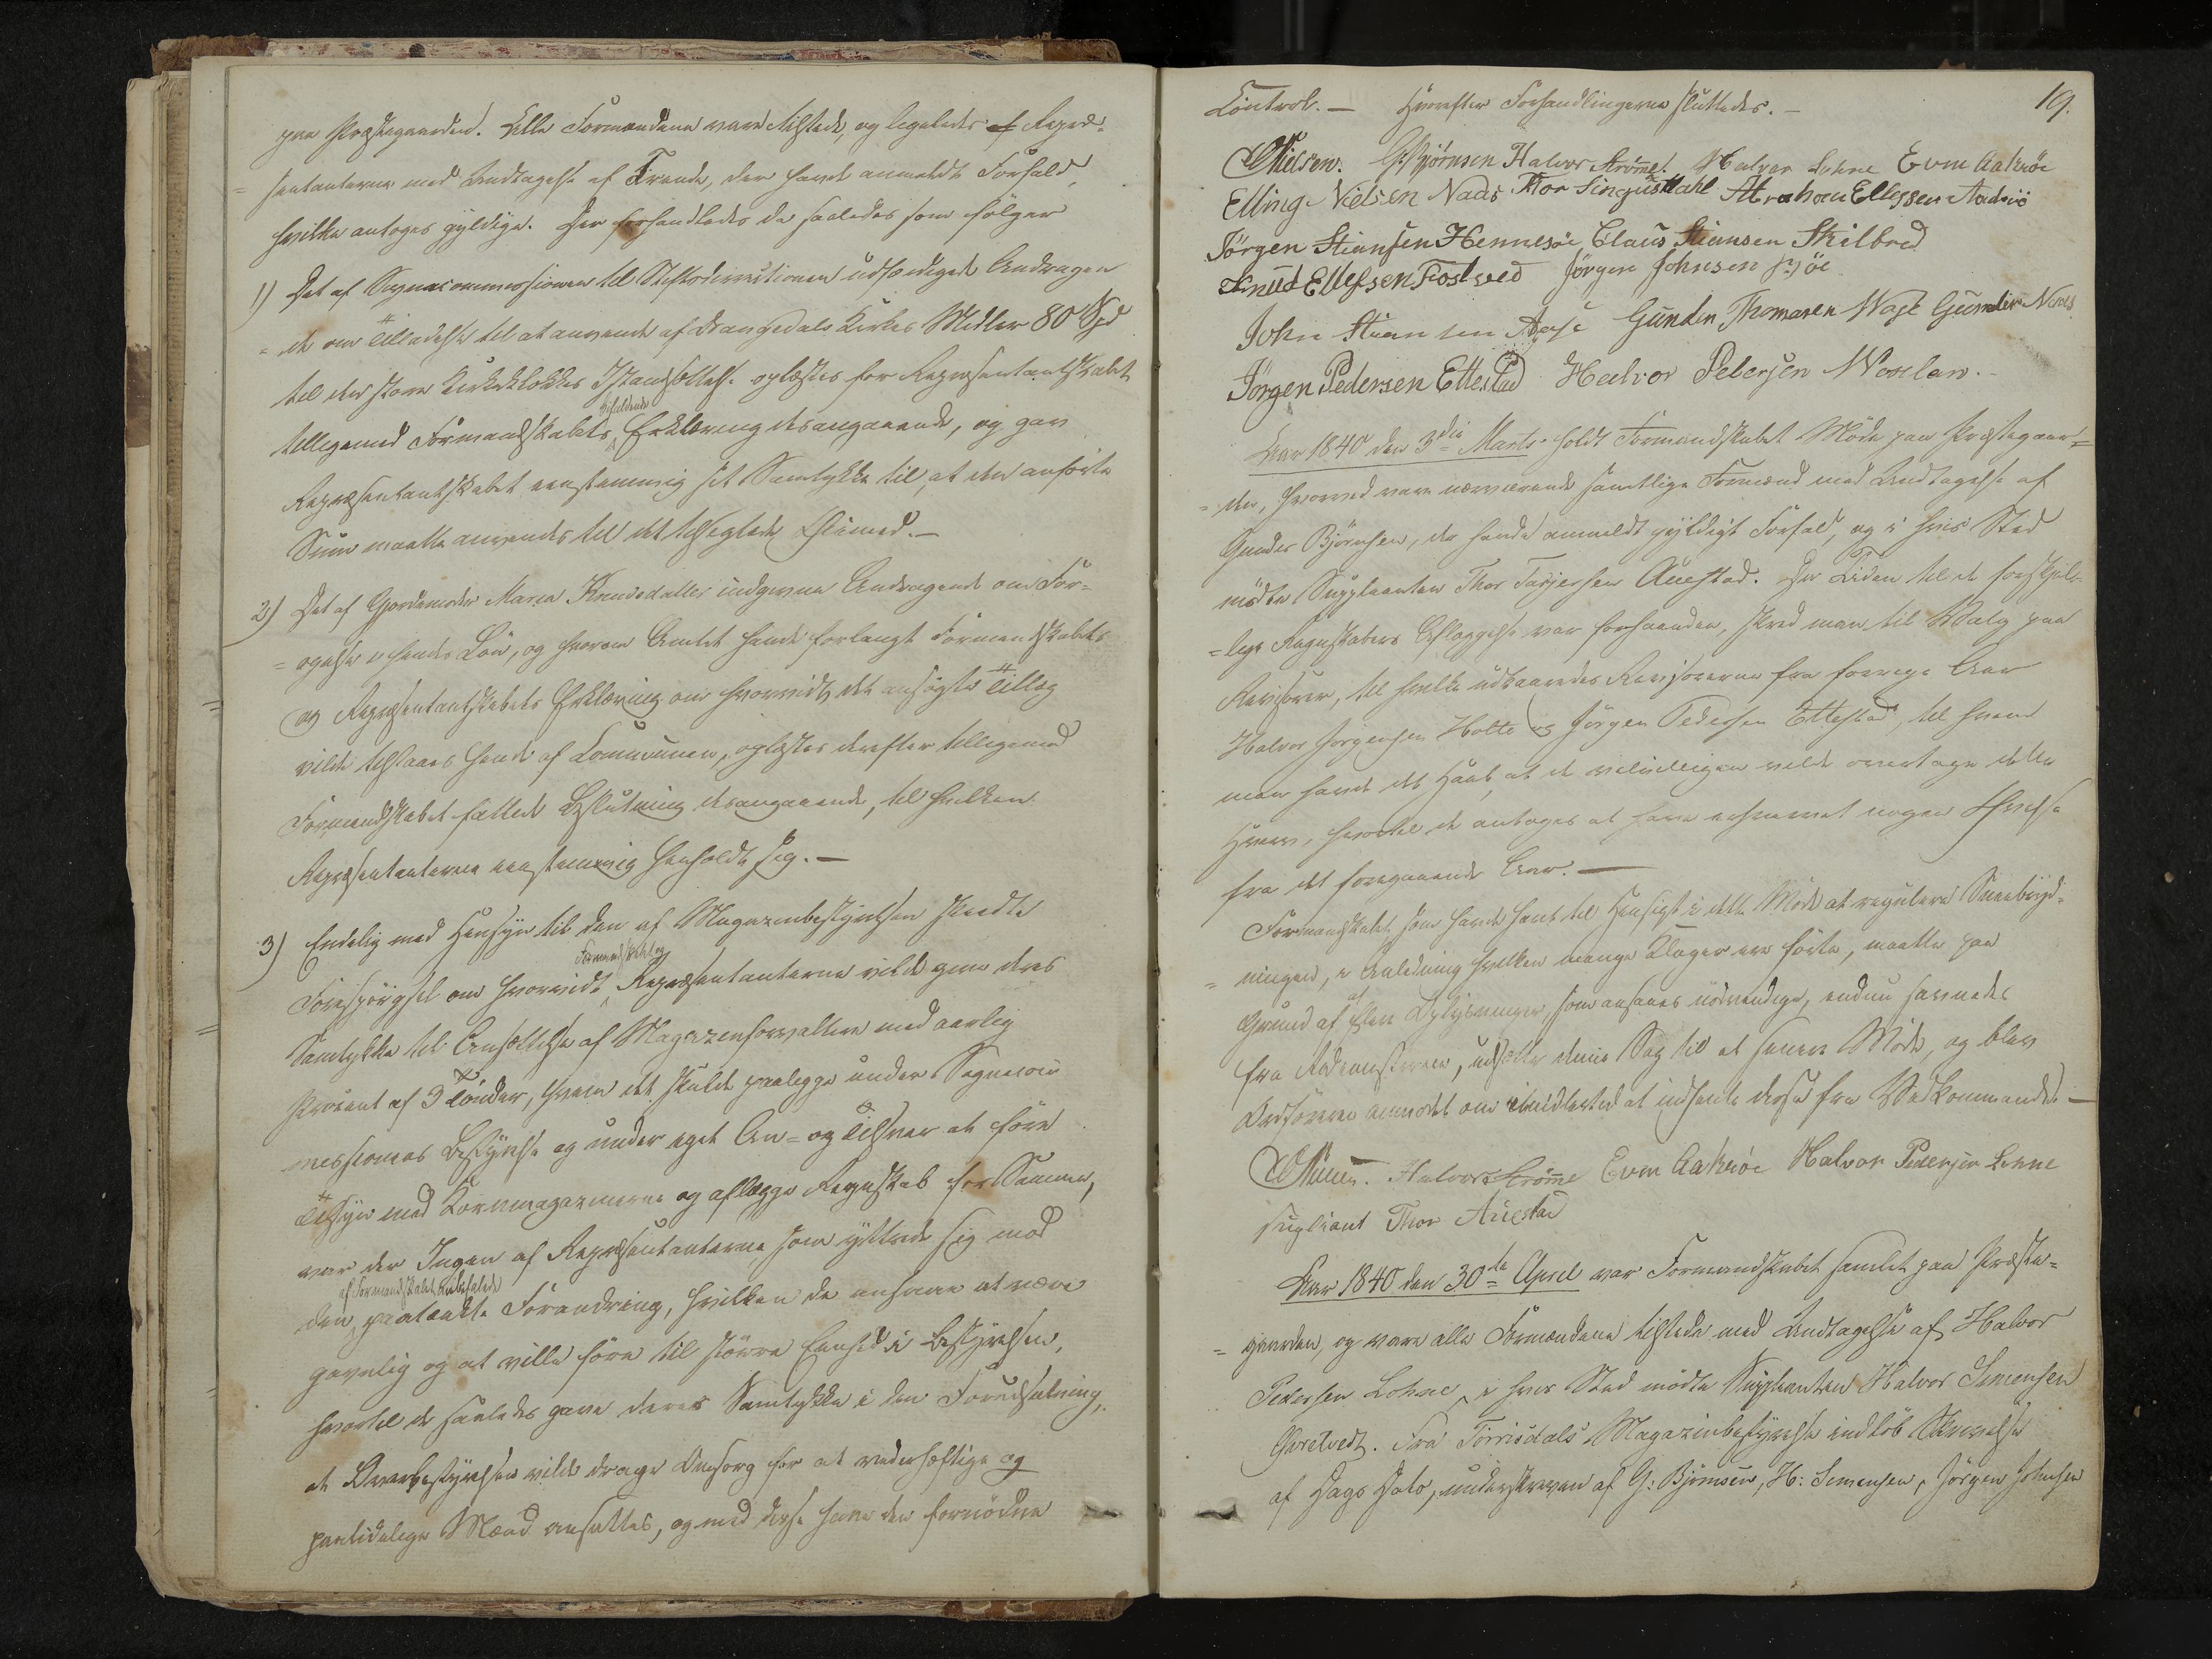 paa Præstegaarden. Alle Formændene vare tilstede, og ligeledes af Repræ-
= sentanterne med Undtagelse af Trende, der havde anmeldt Forfald,
hvilke antoges gyldige. Der forhandledes da saaledes som følger
1) Det af Sognecommissionen til Stiftsdirectionen udfærdigede Andragen-
= de om Tilladelse til at anvende af Drangedals Kirkes Midler 80 Spd
til den store Kirkeklokkes Istandsættelse oplæstes for Repræsentantskabet
tilligemed Formandskabets Erklæring desangaaende, og gav
Repræsentantskabet eenstemmig sit Samtykke til, at den anførte
Sum maatte anvendes til det Øiemed. —
2) Det af Gjordemoder Maren Knudsdatter indgivne Andragende om For-
= øgelse i hendes Løn, og hvorom Amtet havde forlangt Formandskabets
og Repræsentantskabets Erklæring om hvorvidt det ansøgte Tillæg
vilde tilstaaes hende af Communen, oplæstes derefter tilligemed
Formandskabet fattede Beslutning desangaaende, til hvilken
Repræsentanterne eenstemmig henholdt sig. —
3) Endelig med Hensyn til den af Magazinbestyrelsen skeedte
Formandskabet og
Forespørgsel om hvorvidt Repræsentanterne vilde give deres
Samtykke til Ansættelse af Magazinforvaltere med aarlig
Procent af 3 Tønder, hvem det skulde paalegge under Sognecom-
missionens Bestyrelse og under eget An- og Tilsvar at føre
Tilsyn med Kornmagazinerne og aflægge Regnskab for Samme,
var der Ingen af Repræsentanterne, som yttrede sig mod
af Formandskabet anbefalede
den paatænkte Forandring, hvilken de ansaae at være
gavnlig og at ville føre til større Eenhed i Bestyrelsen,
hvortil de saaledes gave deres Samtykke i den Forudsætning,
at Overbestyrelsen vilde drage Omsorg for at vederhæftige og
paalidelige Mænd ansættes, og med disse have den fornødne
19.
Control. — Hvorefter Forhandlingerne sluttedes. —
G. Bjørnsen Halvor Strømme. Halvor Lohne Even Aakrøe
Elling Nielsen Naas Thor Abraham Ellefsen
Jörgen Stiansen Hennesøe Claus Stiansen Skilbred
Knud Ellefsen Tostved Jörgen Johnsen
John Stiansen Gunder Thomasen Gunder Naas
Jörgen Pedersen Ettestad Halvor Pedersen Woxlan.
Aar 1840 den 3die Marts holdt Formandskabet Møde paa Præstegaar-
= den, hvorved vare nærværende samtlige Formænd med Undtagelse af
Gunder Bjørnsen, der havde anmeldt gyldigt Forfald, og i hvis Sted
mødte Suppleanten Thor Auestad. Da Tiden til de forskjel-
= lige Regnskabers Aflæggelse var forhaanden, skred man til Valg paa
Revisorer, til hvilke udkaaredes Revisorerne fra forrige Aar
Halvor Jørgensen Holte og Jørgen Pedersen Ettestad, til hvem
man havde det Haab, at de velvilligen vilde overtage dette
Hverv, hvortil de antoges at have erhvervet nogen Øvelse
fra det foregaaende Aar. —
Formandskabet, som havde havt til Hensigt i dette Møde at regulere Sneebryd-
= ningen, i Anledning hvilken mange Klager ere førte, maatte paa
Grund af at flere Oplysninger, som ansaaes nødvendige, endnu savnedes
fra Rodemesterne, udsætte denne Sag til et senere Møde, og blev
Ordføreren anmodet om imidlertid at indhente disse fra Vedkommende. —
Halvor Strømme Even Aakrøe Halvor Pedersen Lonne
supliant Thor Auestad
Aar 1840 den 30te April var Formandskabet samlet paa Præste-
= gaarden, og vare alle Formændene tilstede med Undtagelse af Halvor
Pedersen Lohne, i hvis Sted mødte Suppleanten Halvor Simensen
Fra Tørrisdals Magazinbestyrelse indløb Skrivelse
af Dags Dato, underskreven af G: Bjørnsen, H: Simensen, Jörgen Johnsen